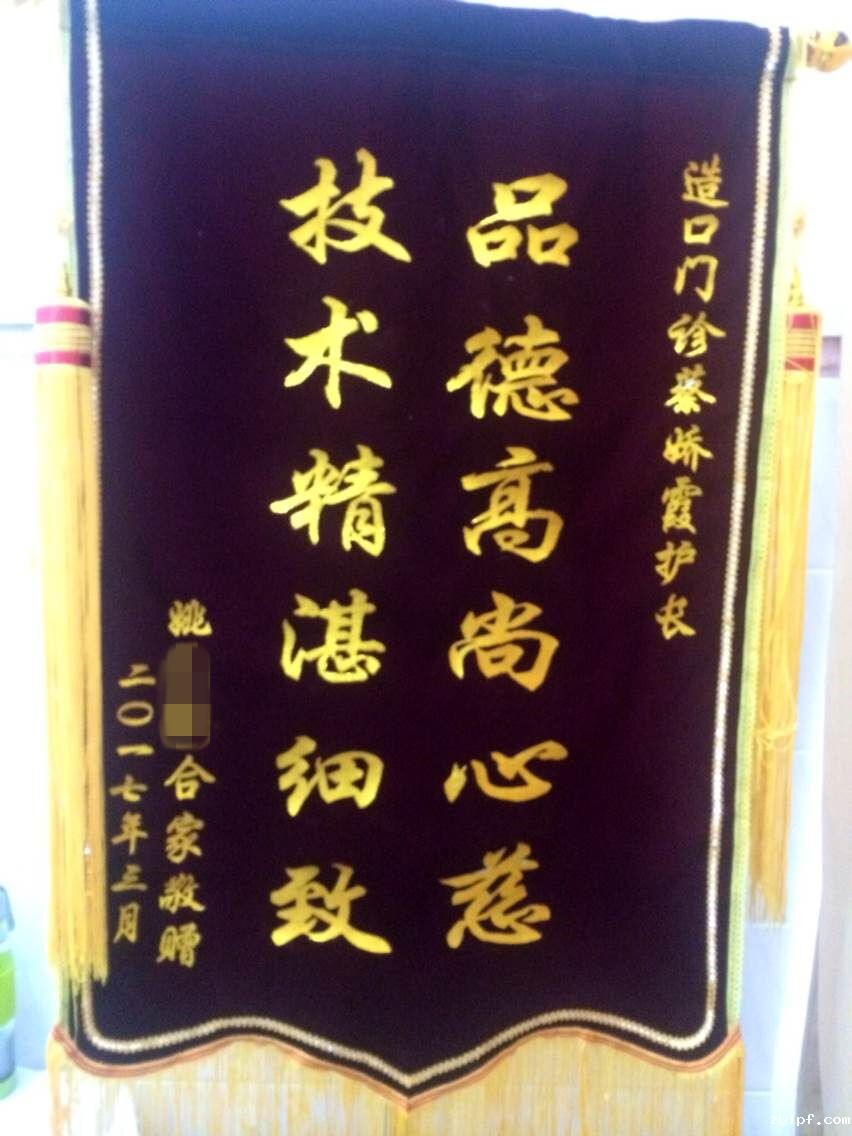 造口门诊蔡娇霞护长
品德高尚心慈
技术精湛细致
姚合家敬赠
二〇一七年三月
zuipf.com